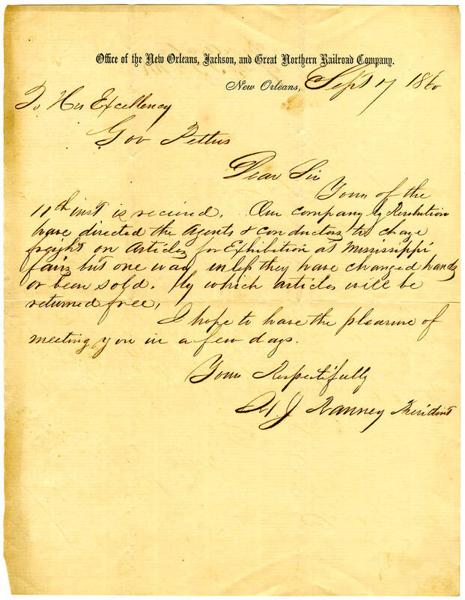 Office of the New Orleans, Jackson, and Great Northern Railroad Company.
New Orleans, Sept 17 1860
To His Excellency
Gov Pettus
Dear Sir
Yours of the
11th inst is received. Our company by Resolution
have directed the Agents & conductors to charge
freight on Articles for Exhibition at Mississippi
fairs but one way, unless they have changed hands
or been sold. By which articles will be
returned free.
I hope to have the pleasure of
meeting you in a few days.
Yours Respectfully
H J Ranney President